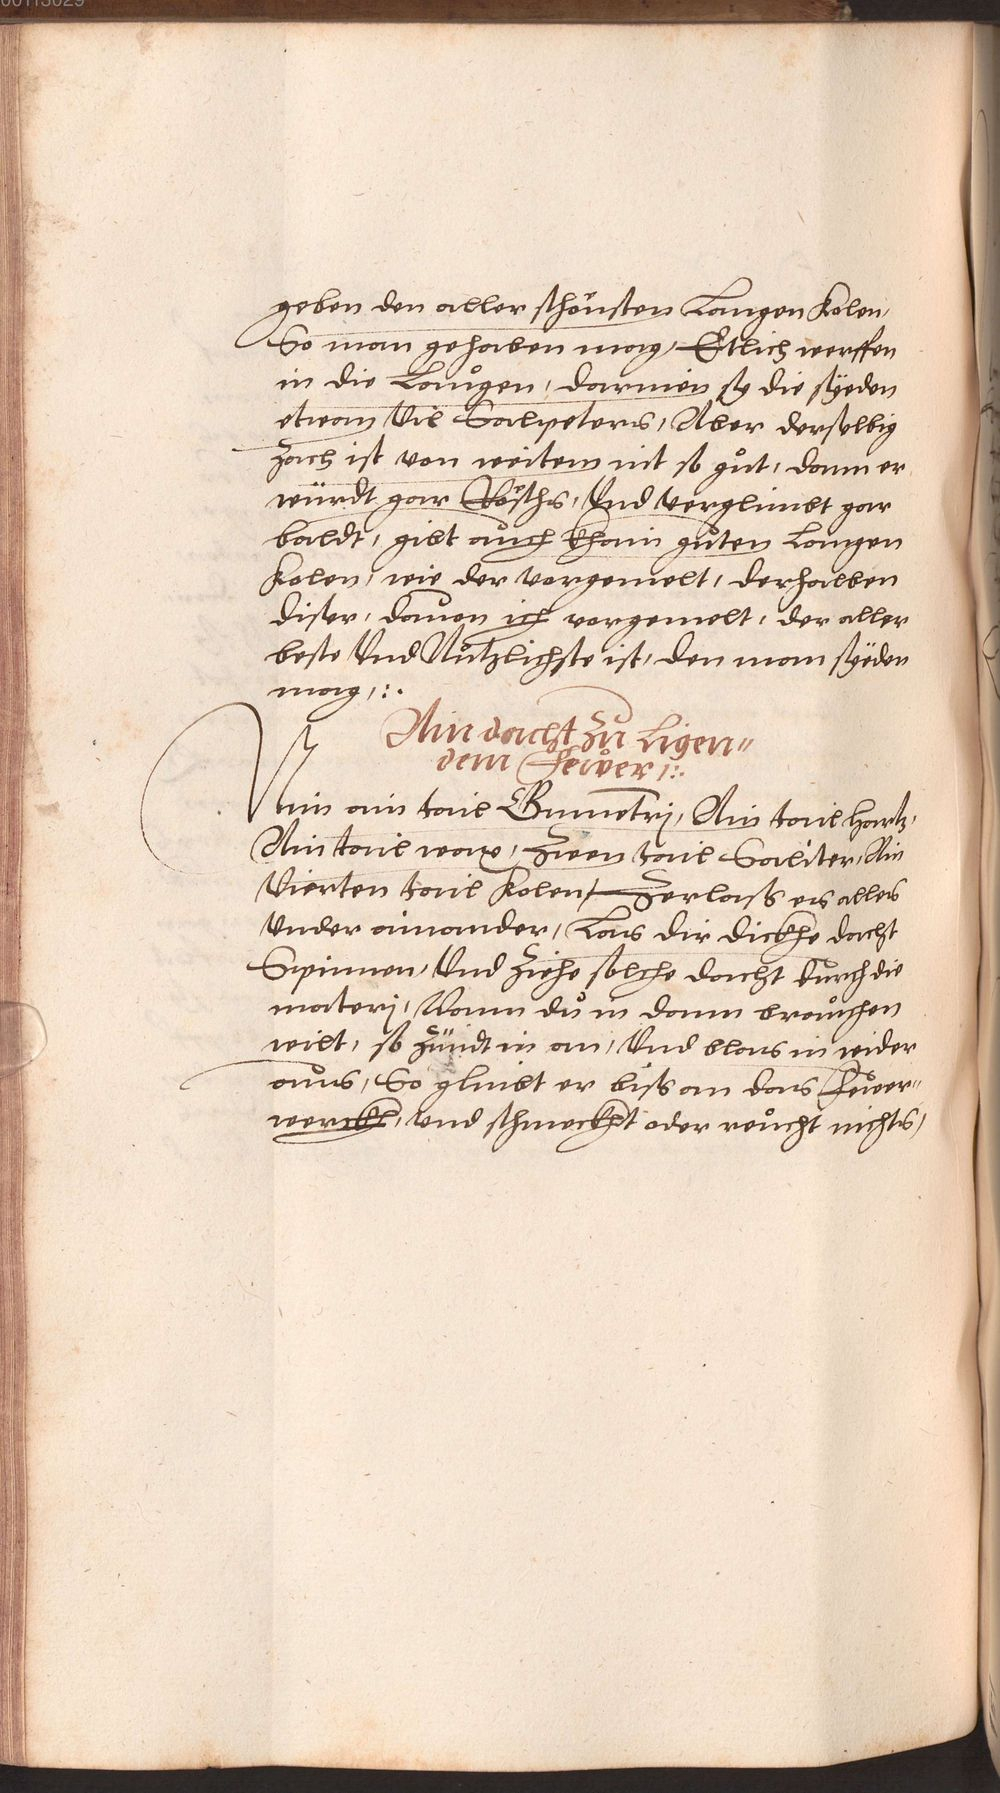 geben den aller schönsten Langen Kolen,
So man gehaben mag, Etlich werffen
in die Laugen, darinen sy die syeden
etwan Vil Salpeters, Aber derselbig
Zach ist von weitem nit so gůt, dann er
würdt gar Röschs, Vnd verglimbt gar
baldt, gibt auch khain gůten Langen
Kolen, wie der vorgemelt, derhalben
diser, dauon ich vorgemelt, der aller
beste Vnd Nutzlichste ist, den man syëden
mag,:.
Ain dacht Zu Ligen=
dem Feůer,:.
Nim ain tail Gumetri, Ain tail hartz,
Ain tail wax, Zwen tail Saliter, Ain
Vierten tail Kolen, Zerlass es alles
Vnder ainander, Las dir dickhe dacht
Spinnen, Vnd Ziehe solche dacht durch die
materi, Wann du in dann brauchen
wilt, so Zündt in an, Vnd blas in wider
auss, So glimbt er biss an das Feůer=
werckh, vnd schmeckht oder reucht nichts,